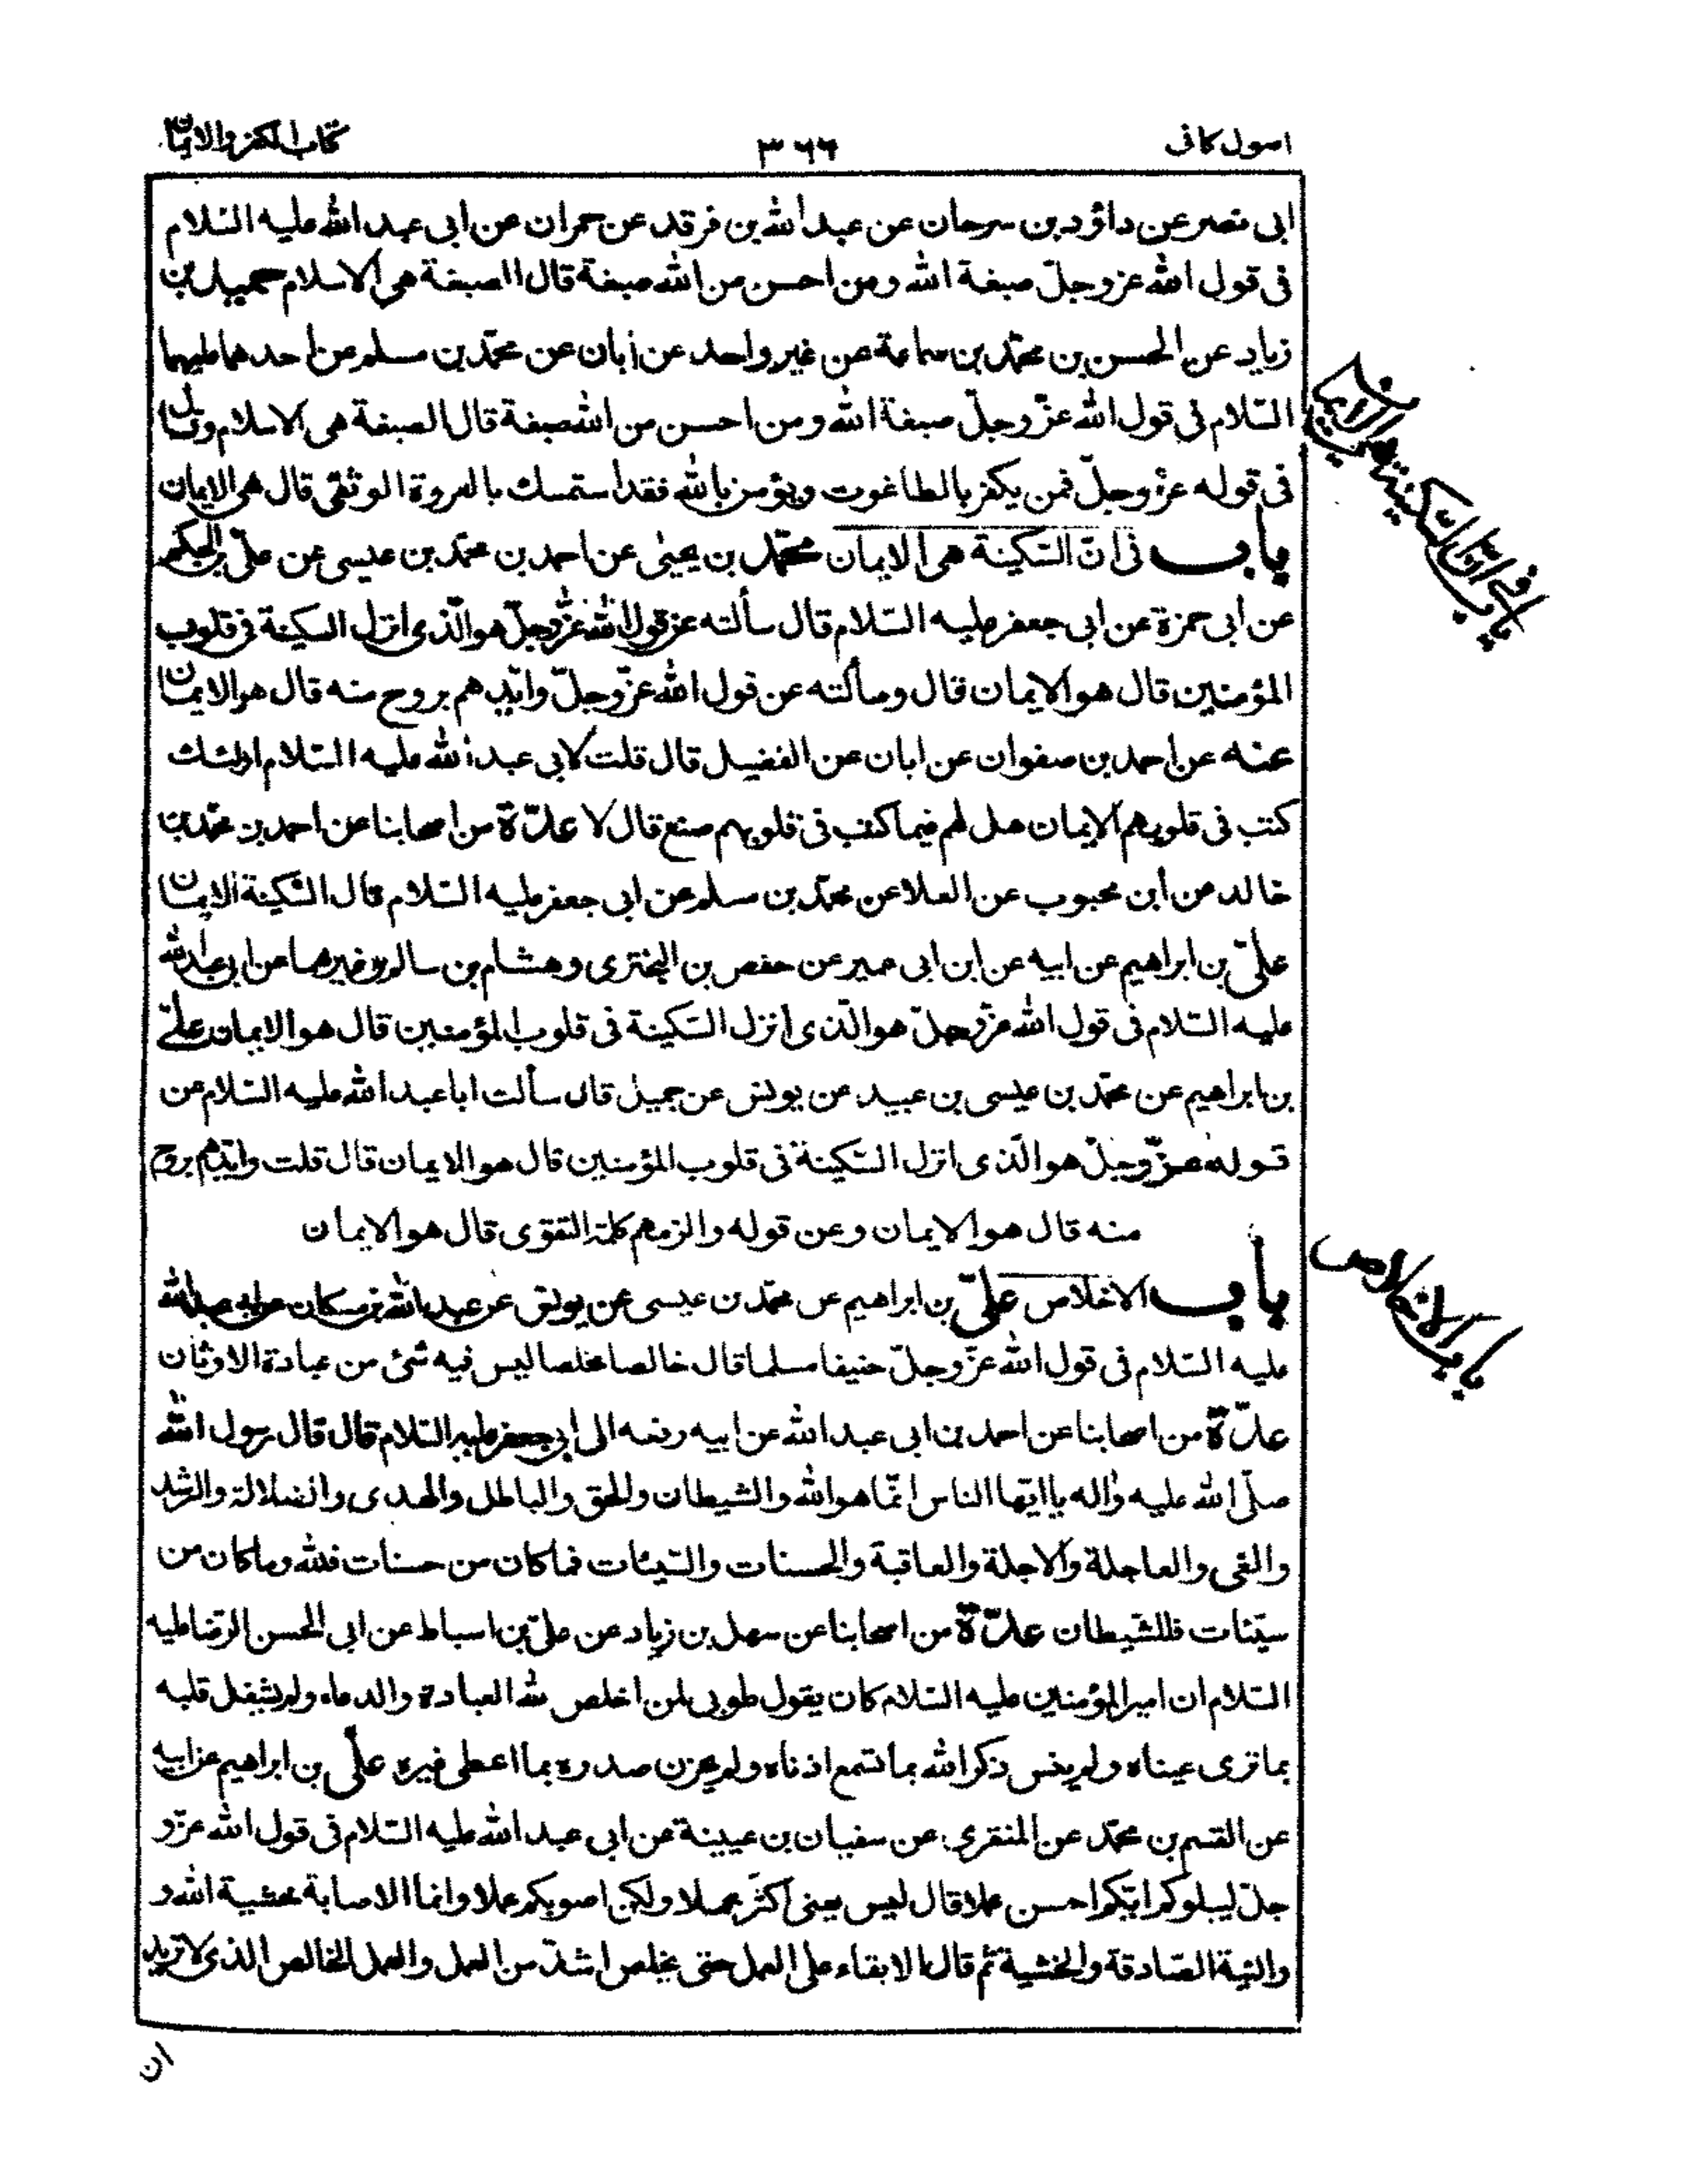 اسول كافى
٣٦٦
كتاب الكفر والايمان
ابى نصر عن داؤد بن سرحان عن عبد الله بن فرقد عن حمران عن ابى عبد الله عليه السّلام
فى قول الله عز وجلّ صبغة الله ومن احسن من الله صبغة قال الصبغة هى الاسلام حميد بن
زياد عن الحسن بن محمّد بن سماعة عن غير واحد عن أبان عن محمّد بن مسلم عن احدهما عليهما
السّلام فى قول الله عزّ وجلّ صبغة الله ومن احسن من الله صبغة قال الصبغة هى الاسلام وقال
فى قوله عزّ وجلّ فمن يكفر بالطاغوت ويؤمن بالله فقد استمسك بالعروة الوثقى قال هى الايمان
باب فى انّ السّكينة هى الايمان محمّد بن يحيىٰ عن احمد بن محمّد بن عيسى عن علىّ بن الحكم
عن ابى حمزة عن ابى جعفر عليه السّلام قال سألته عن قول الله عزّ وجلّ هو الّذى انزل السكينة فى قلوب
المؤمنين قال هو الايمان قال وسألته عن قول الله عزّ وجلّ وايّدهم بروح منه قال هو الايمان
عنه عن احمد بن صفوان عن ابان عن الفضيل قال قلت لابى عبد الله عليه السّلام اولئك
كتب فى قلوبهم الايمان هل لهم فيما كتب فى قلوبهم صنع قال لا عدّة من اصحابنا عن احمد بن محمّد بن
خالد عن ابن محبوب عن العلا عن محمّد بن مسلم عن ابى جعفر عليه السّلام قال السّكينة الايمان
علىّ بن ابراهيم عن ابيه عن ابن ابى عمير عن حفص بن البخترى وهشام بن سالم وغيرهما عن ابى عبد الله
عليه السّلام فى قول الله عزّ وجلّ هو الّذى انزل السّكينة فى قلوب المؤمنين قال هو الايمان علىّ
بن ابراهيم عن محمّد بن عيسى بن عبيد عن يونس عن جميل قال سألت ابا عبد الله عليه السّلام عن
قوله عزّ وجلّ هو الّذى انزل السّكينة فى قلوب المؤمنين قال هو الايمان قال قلت وايّدهم بروح
منه قال هو الايمان وعن قوله والزمهم كلمة التقوى قال هو الايمان
باب الاخلاص علىّ بن ابراهيم عن محمّد بن عيسى عن يونس عن عبد الله بن مسكان عن ابى عبد الله
عليه السّلام فى قول الله عزّ وجلّ حنيفا مسلما قال خالصا مخلصا ليس فيه شئ من عبادة الاوثان
عدّة من اصحابنا عن احمد بن ابى عبد الله عن ابيه رفعه الى ابى جعفر عليه السّلام قال قال رسول الله
صلّى الله عليه واٰله يا ايّها الناس انّما هو الله والشيطان والحق والباطل والهدى والضلالة والرشد
والغى والعاجلة والاجلة والعاقبة والحسنات والسّيئات فما كان من حسنات فلله وما كان من
سيّئات فللشّيطان عدّة من اصحابنا عن سهل بن زياد عن علىّ بن اسباط عن ابى الحسن الرّضا عليه
السّلام ان امير المؤمنين عليه السّلام كان يقول طوبى لمن اخلص لله العبادة والدعاء ولم يشغل قلبه
بما ترى عيناه ولم ينس ذكر الله بما تسمع اذناه ولم يحزن صدره بما اعطى غيره علىّ بن ابراهيم عن ابيه
عن القسم بن محمّد عن المنقرى عن سفيان بن عيينة عن ابى عبد الله عليه السّلام فى قول الله عزّ و
جلّ ليبلوكم ايّكم احسن عملا قال ليس يعنى اكثر عملا ولكن اصوبكم عملا وانما الاصابة خشية الله و
والنيّة الصّادقة والخشية ثم قال الابقاء على العمل حتى يخلص اشدّ من العمل والعمل الخالص الذى لا تريد
ان
باب فى انّ السّكينة هى الايمان
باب الاخلاص